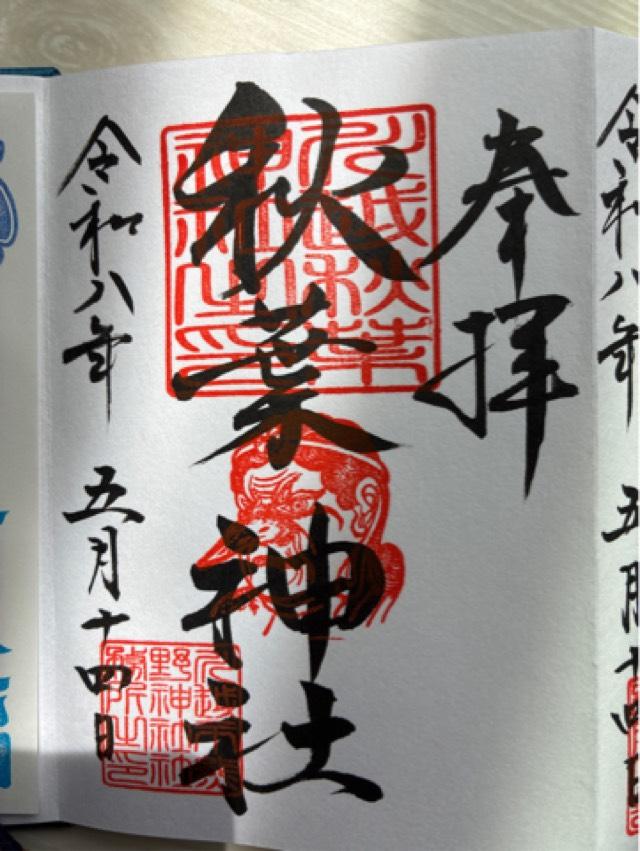 令和八年 五月十四日
奉拝
秋葉神社
令和八年 五月十四日